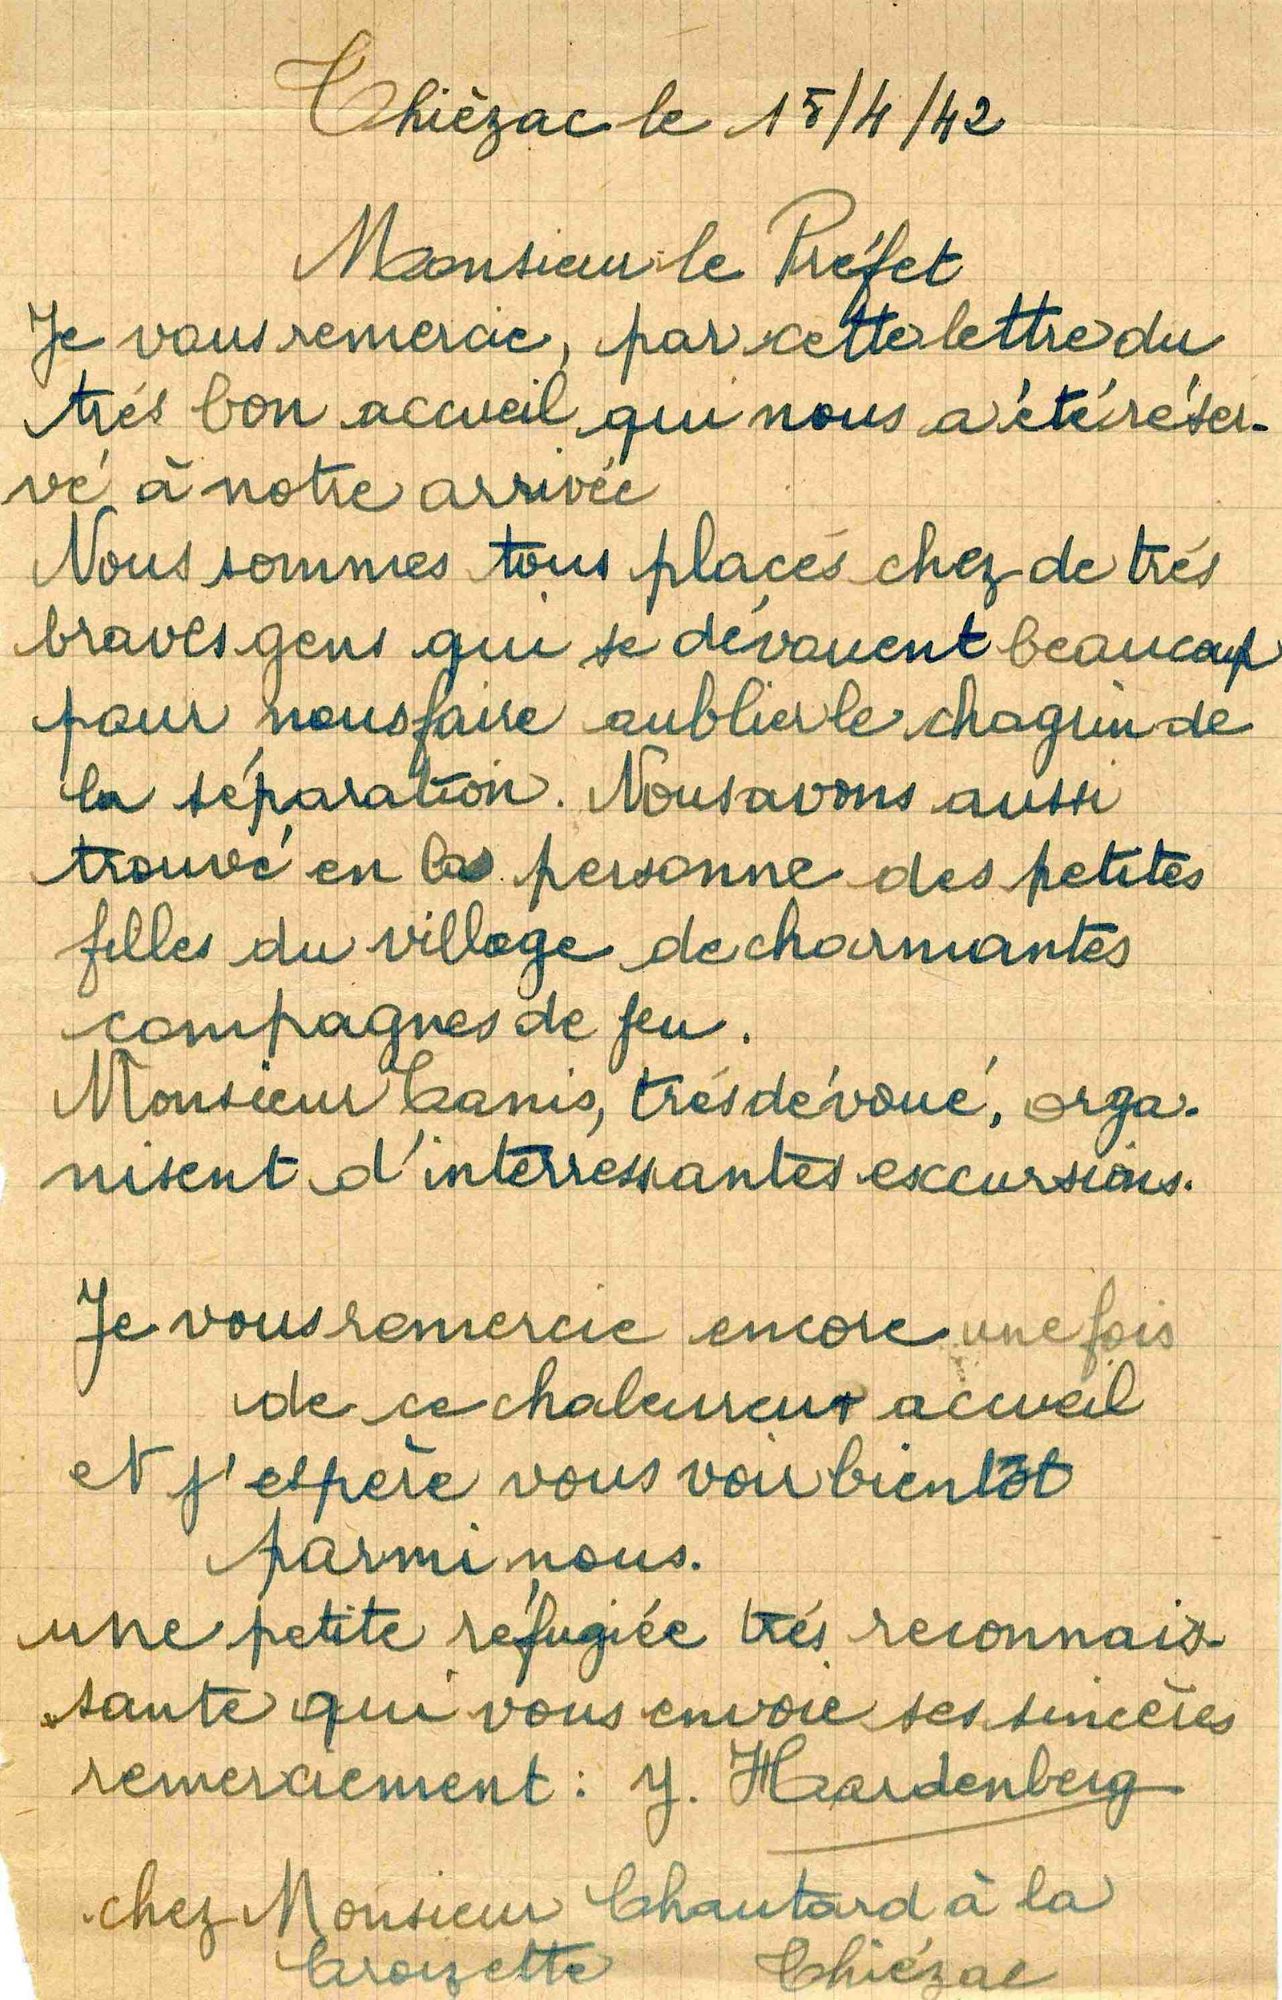 Thièzac le 15/4/42
Monsieur le Préfet
Je vous remercie, par cette lettre du
trés bon accueil qui nous a été réser-
vé à notre arrivée
Nous sommes tous placés chez de trés
braves gens qui se dévouent beaucoup
pour nous faire oublier le chagrin de
la séparation. Nous avons aussi
trouvé en la personne des petites
filles du village de charmantes
compagnes de jeu.
Monsieur Canis, trés dévoué, orga-
nisent d'interressantes excursions.
Je vous remercie encore une fois
de ce chaleureux accueil
et j'espère vous voir bientôt
parmi nous.
une petite réfugiée trés reconnais-
sante qui vous envoie ses sincères
remerciement : Y. Hardenberg
chez Monsieur Chautard à la
Croizette Thiézac